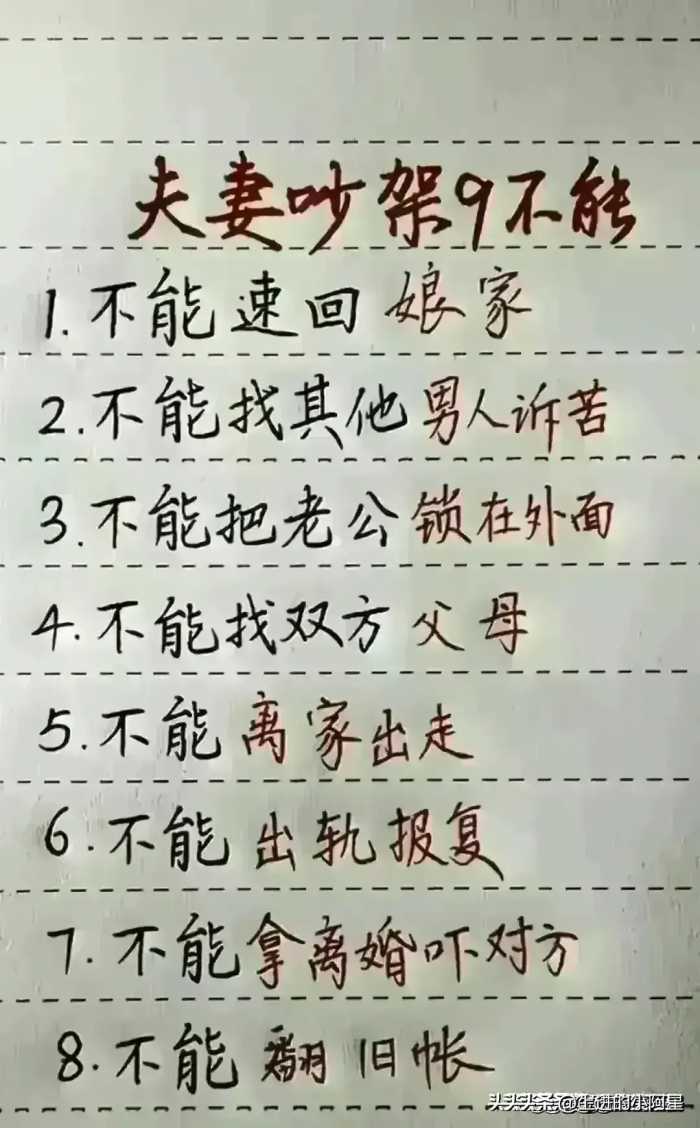 夫妻吵架9不能
1.不能速回娘家
2.不能找其他男人诉苦
3.不能把老公锁在外面
4.不能找双方父母
5.不能离家出走
6.不能出轨报复
7.不能拿离婚吓对方
8.不能翻旧帐